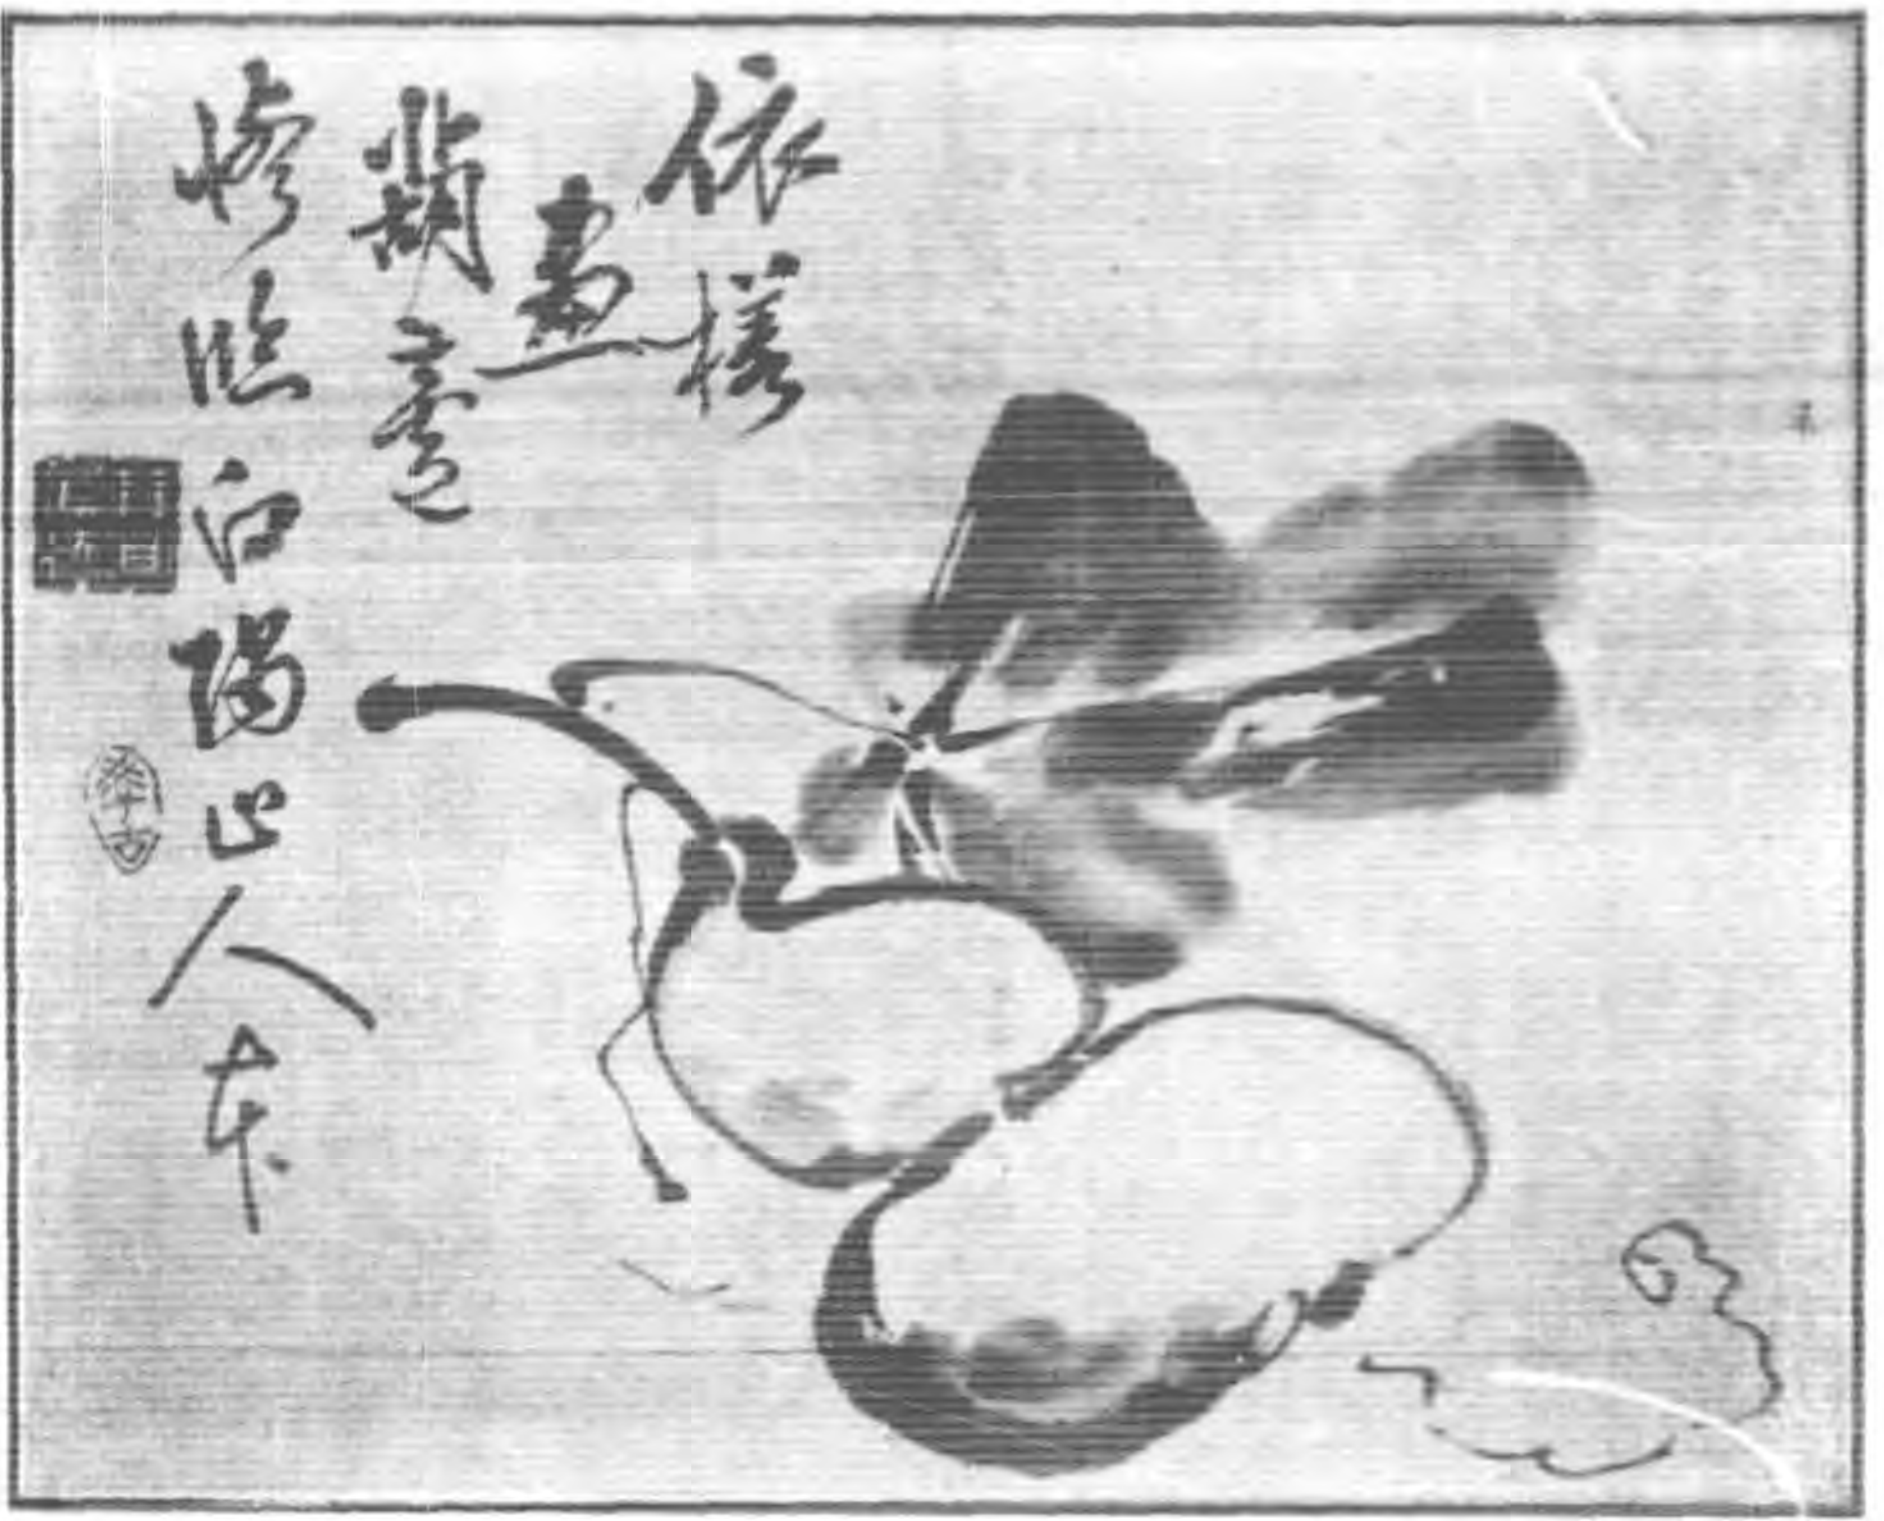 依樣
畫
葫蘆
臨白陽山人本